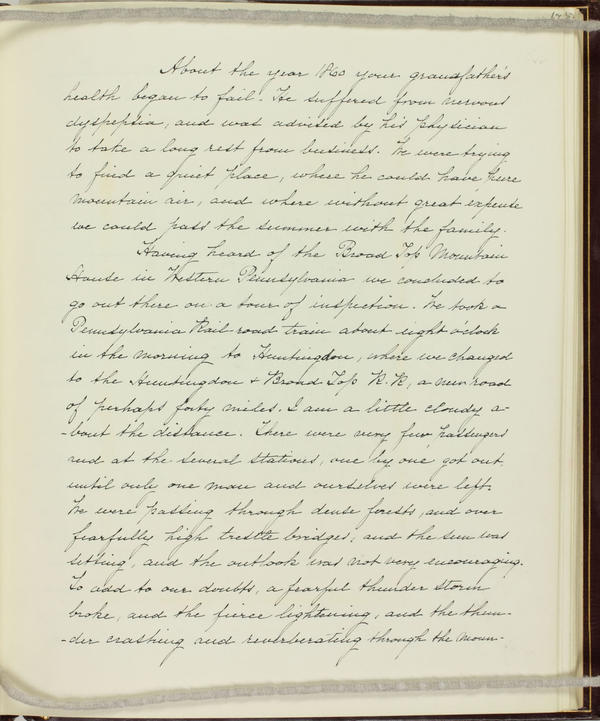 About the year 1860 your grandfather's
health began to fail. He suffered from nervous
dyspepsia, and was advised by his physician
to take a long rest from business. We were trying
to find a quiet place, where he could have pure
mountain air, and where without great expense
we could pass the summer with the family.
Having heard of the Broad Top Mountain
House in Western Pennsylvania we concluded to
go out there on a tour of inspection. We took a
Pennsylvania Rail road train about eight o'clock
in the morning to Huntingdon, where we changed
to the Huntingdon & Broad Top R. R, a new road
of perhaps forty miles. I am a little cloudy a-
-bout the distance. There were very few passengers
and at the several stations, one by one got out
until only one man and ourselves were left.
We were passing through dense forests, and over
fearfully high trestle bridges, and the sun was
setting, and the outlook was not very encouraging.
To add to our doubts, a fearful thunder storm
broke, and the fierce lightening, and the thun-
-der crashing and reverberating through the moun-